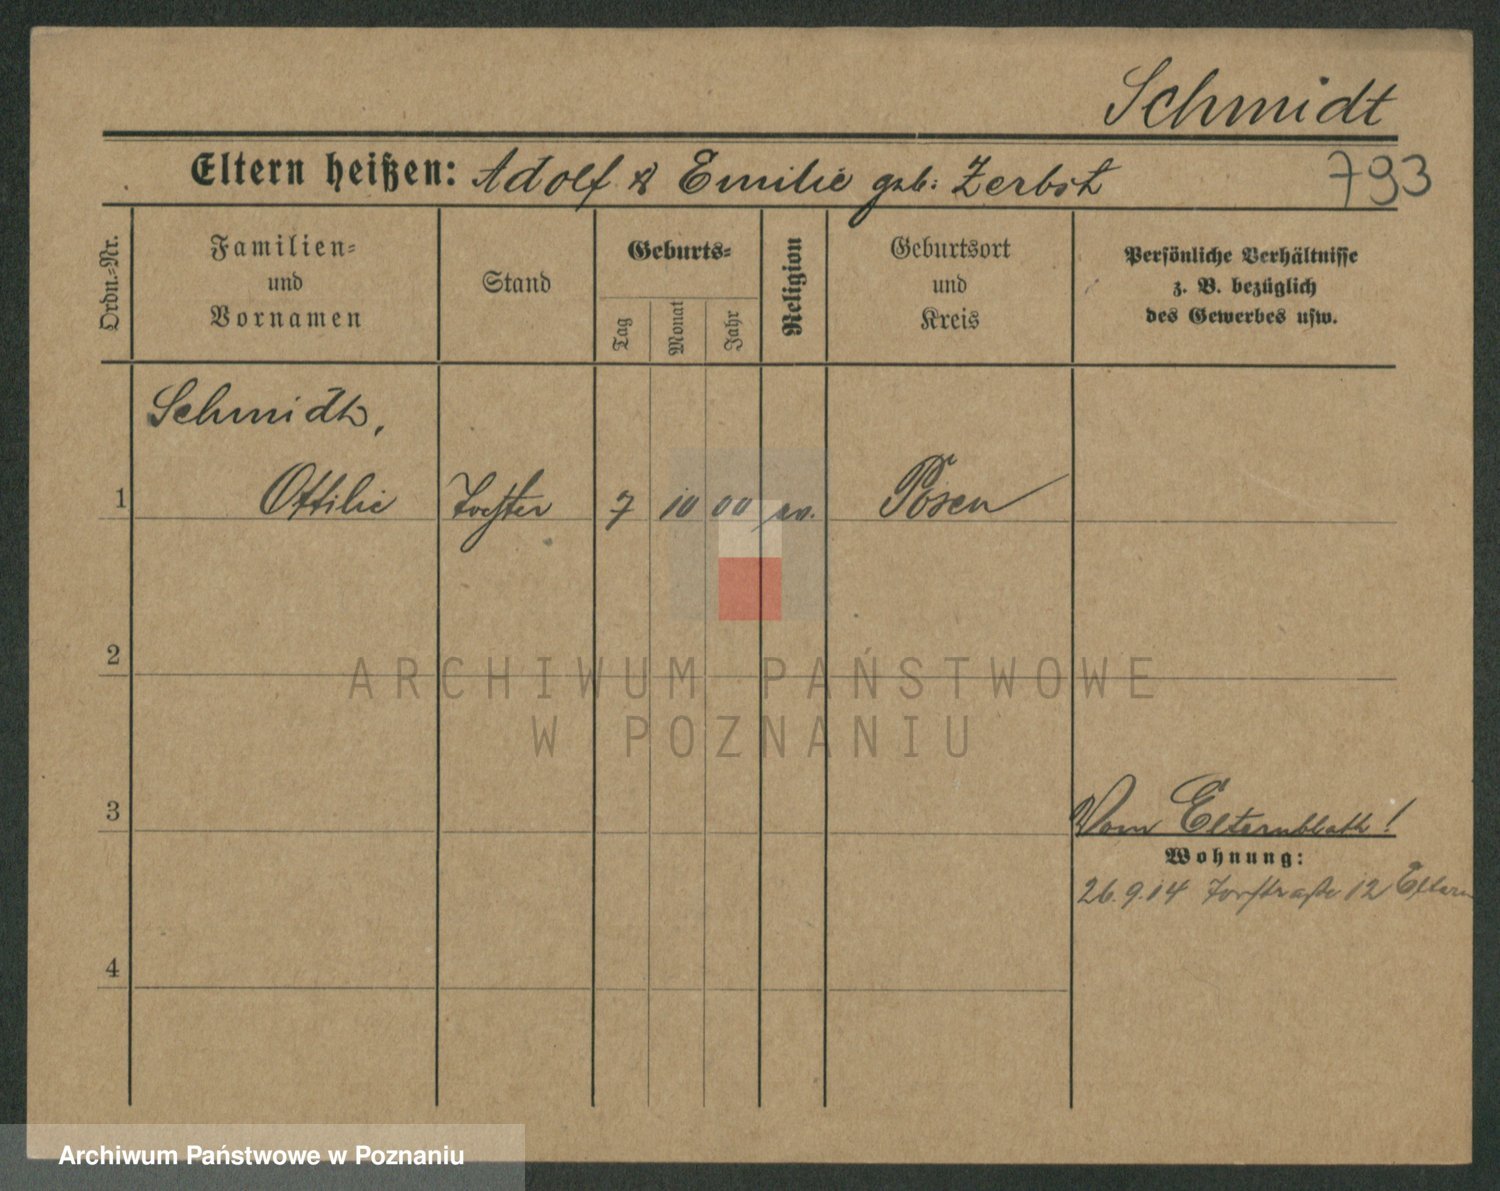 Schmidt
Eltern heißen: Adolf & Emilie geb: Zerbst 793
Ordn.=Nr.
Familien=
und
Vornamen
Stand
Geburts=
Tag
Monat
Jahr
Religion
Geburtsort
und
Kreis
Persönliche Verhältnisse
z. B. bezüglich
des Gewerbes usw.
Schmidt,
1 Ottilie Tochter 7 10 00 ev. Posen
2
ARCHIWUM PAŃSTWOWE
W POZNANIU
3 Vom Elternblatt!
Wohnung:
26.9.14 Torstraße 12 Eltern
4
Archiwum Państwowe w Poznaniu